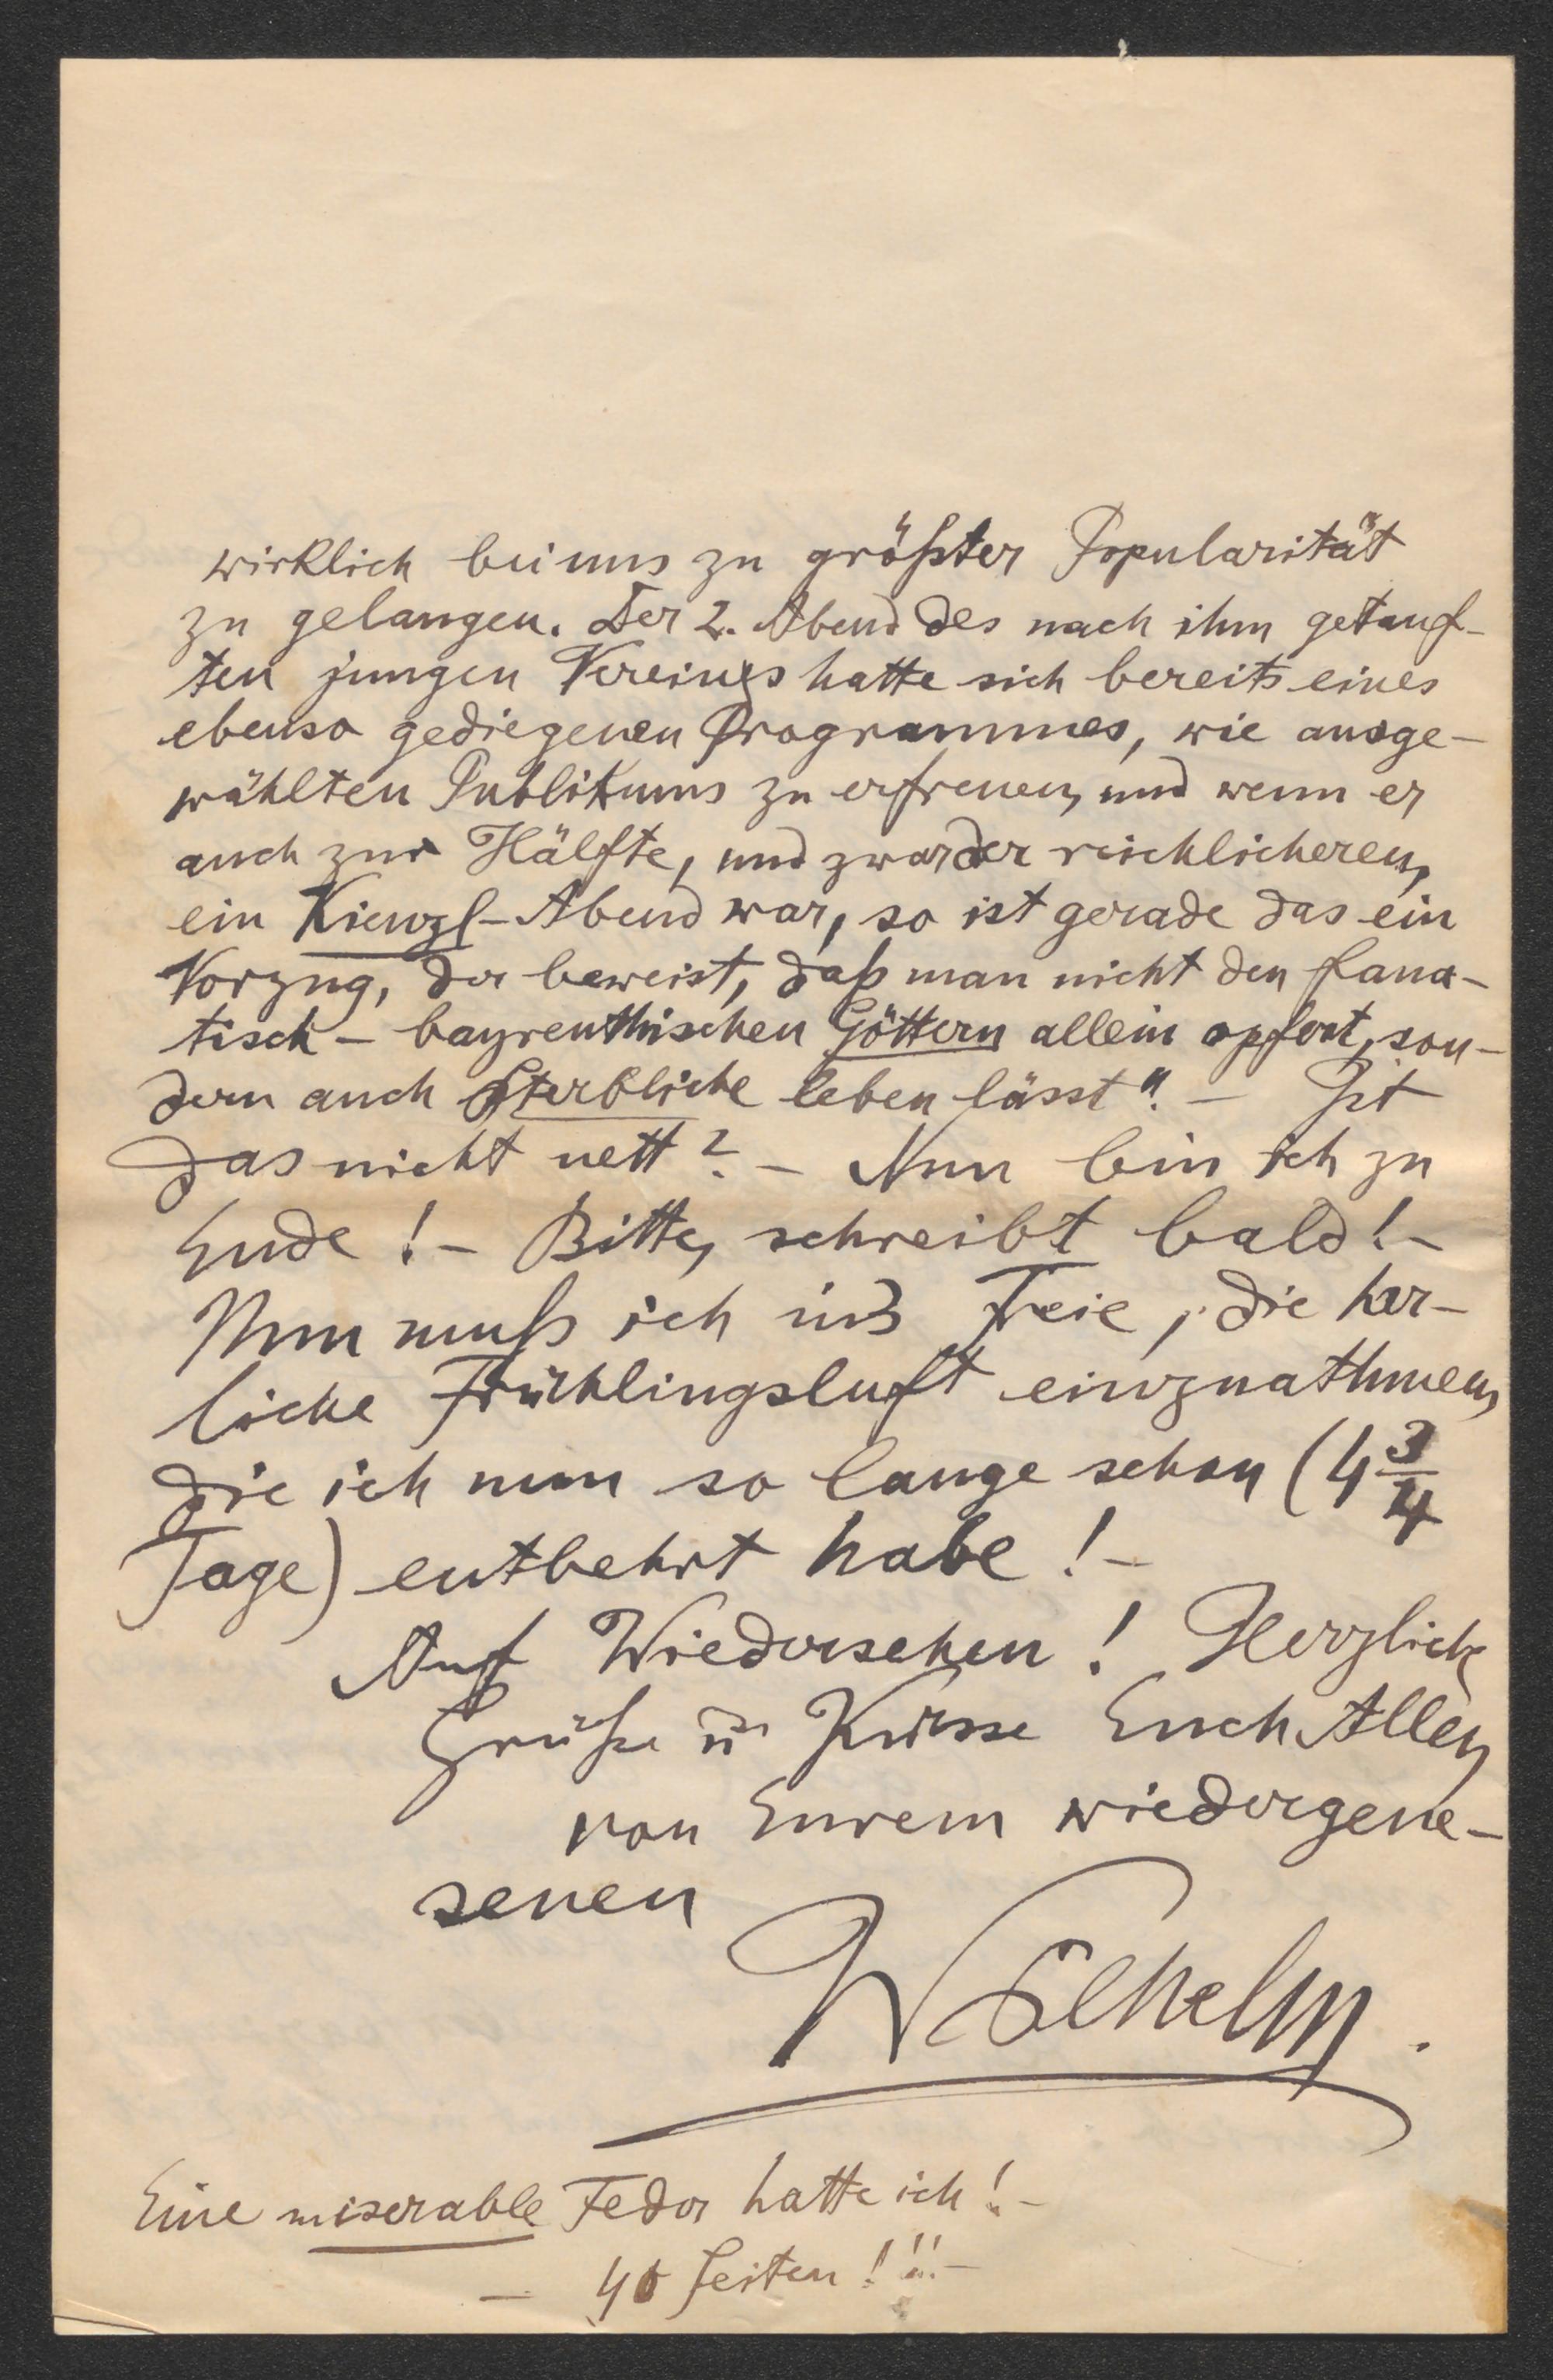 wirklich bei uns zu größter Popularität
zu gelangen. Der 2. Abend des nach ihm getauf-
ten jungen Vereines hatte sich bereits eines
ebenso gediegenen Programmes, wie ausge-
wählten Publikums zu erfreuen, und wenn er
auch zur Hälfte, und zwar der reichlicheren,
ein Kienzl-Abend war, so ist gerade das ein
Vorzug, der beweist, daß man nicht den fana-
tisch-bayreuthischen Göttern allein opfert, son-
dern auch Sterbliche leben lässt". - Ist
das nicht nett? - Nun bin ich zu
Ende! - Bitte, schreibt bald! -
Nun muß ich in's Freie, die herr-
liche Frühlingsluft einzuathmen,
die ich nun so lange schon (4 3/4
Tage) entbehrt habe! -
Auf Wiedersehen! Herzliche
Grüße u Küsse Euch Allen
von Eurem wiedergene-
senen
Wilhelm.
Eine miserable Feder hatte ich! -
- 40 Seiten!!! -